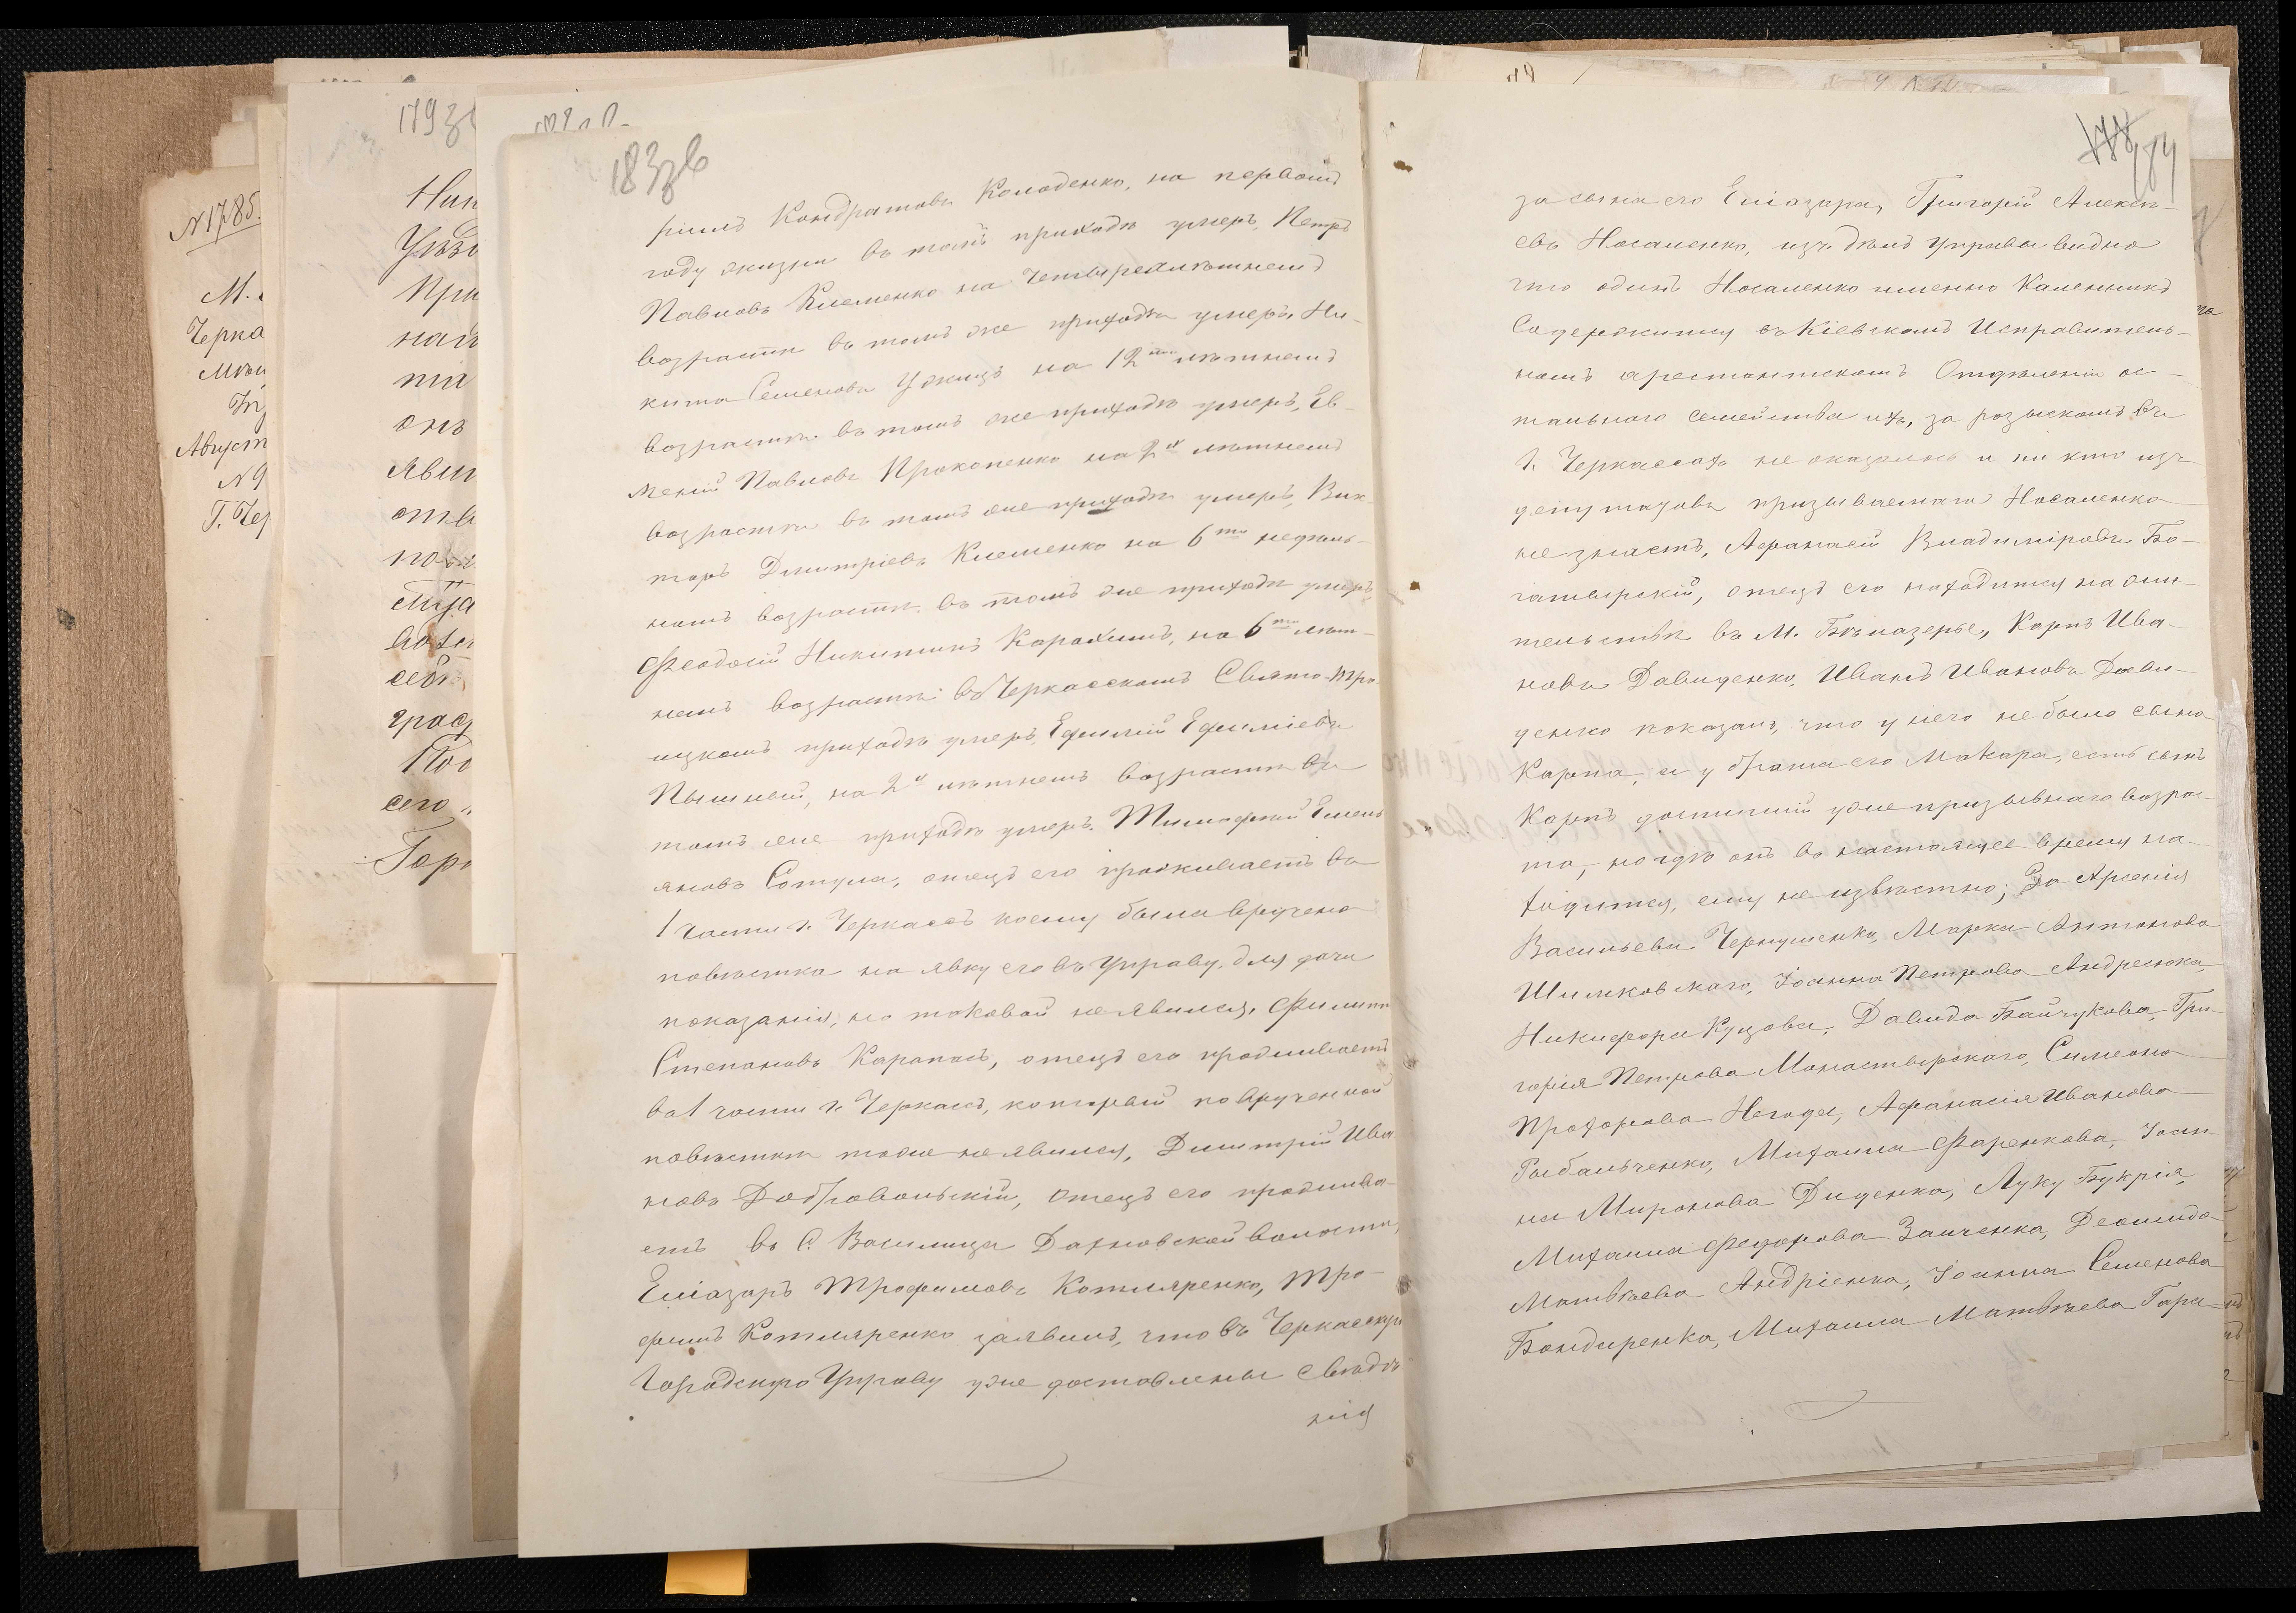 183зв
рилъ Кондратовъ Колоденко, на первомъ
году жизни въ томъ приходѣ умеръ, Петръ
Павловъ Клеменко на четырехлѣтнемъ
возрастѣ въ томъ же приходѣ умеръ, Ни-
кита Семеновъ на 12ти лѣтнемъ
возрастѣ въ томъ же приходѣ умеръ, Ев-
меній Павловъ Прокопенко на 2хъ лѣтнемъ
возрастѣ въ томъ же приходѣ умеръ, Вик-
торъ Дмитріевъ Клеменко на 6ти недѣль-
номъ возрастѣ въ томъ же приходѣ умеръ,
Феодосій Никитинъ на 6ти лѣт-
немъ возрастѣ въ Черкасскомъ Свято-Тро-
ицкомъ приходѣ умеръ, Ефимій Ефиміевъ
Пышный, на 2хъ лѣтнемъ возрастѣ въ
томъ же приходѣ умеръ. Тимофей Емель
яновъ Сотула, отецъ его проживаетъ въ
1 части г. Черкассъ коему была вручена
повѣстка на явку его въ Управу, для дачи
показанія, но таковой не явился, Филиппъ
Степановъ Карапась, отецъ его проживаетъ
въ 1 части г. Черкассъ, который по врученной
повѣсткѣ тоже не явился, Димитрій Ива
новъ Добровольскій, отецъ его прожива-
етъ въ с. Василица Дахновской волости,
Еліазаръ Трофимовъ Котляренко, Тро-
фимъ Котляренко заявилъ, что въ Черкасскую
Городскую Управу уже доставлены свѣдѣ
нія
184
за сына его Еліазара, Григорій Алексѣ-
евъ Носаленко, изъ дѣлъ Управы видно
что одинъ Носаленко именно Каленникъ
Содержится въ Кіевскомъ Исправитель-
номъ арестантскомъ Отдѣленіи ос-
тальнаго семейства ихъ, за розыскомъ въ
г. Черкассахъ не оказалось и ни кто изъ
депутатовъ призываемаго Носаленка
не знаетъ, Афанасій Владиміровъ Бо-
гатырскій, отецъ его находится на жи-
тельствѣ въ М. Бѣлозерье, Карпъ Ива-
новъ Давиденко, Иванъ Ивановъ Дави-
денко показалъ, что у него не было сына
Карпа, а у брата его Макара, есть сынъ
Карпъ достигшій уже призывнаго возрас-
та, но гдѣ онъ въ настоящее время на-
ходится, ему не извѣстно; За Арсенія
Васильева Чернушенка, Марка Антонова
Шимковскаго, Іоанна Петрова Андреюка,
Никифора Куцова, Давида Байчукова, Гри-
горія Петрова Монастырскаго, Симеона
Прохорова Негода, Афанасія Иванова
Рыбальченко, Михаила Фаренкова, Іоан-
на Миронова Диденка, Луку Букрія,
Михаила Федорова Заиченка, Деомида
Матвѣева Андріенка, Іоанна Семенова
Бондаренка, Михаила Матвѣева Гара-
179зв
N 1785.
Черка
Август
N 9
Г. Чер